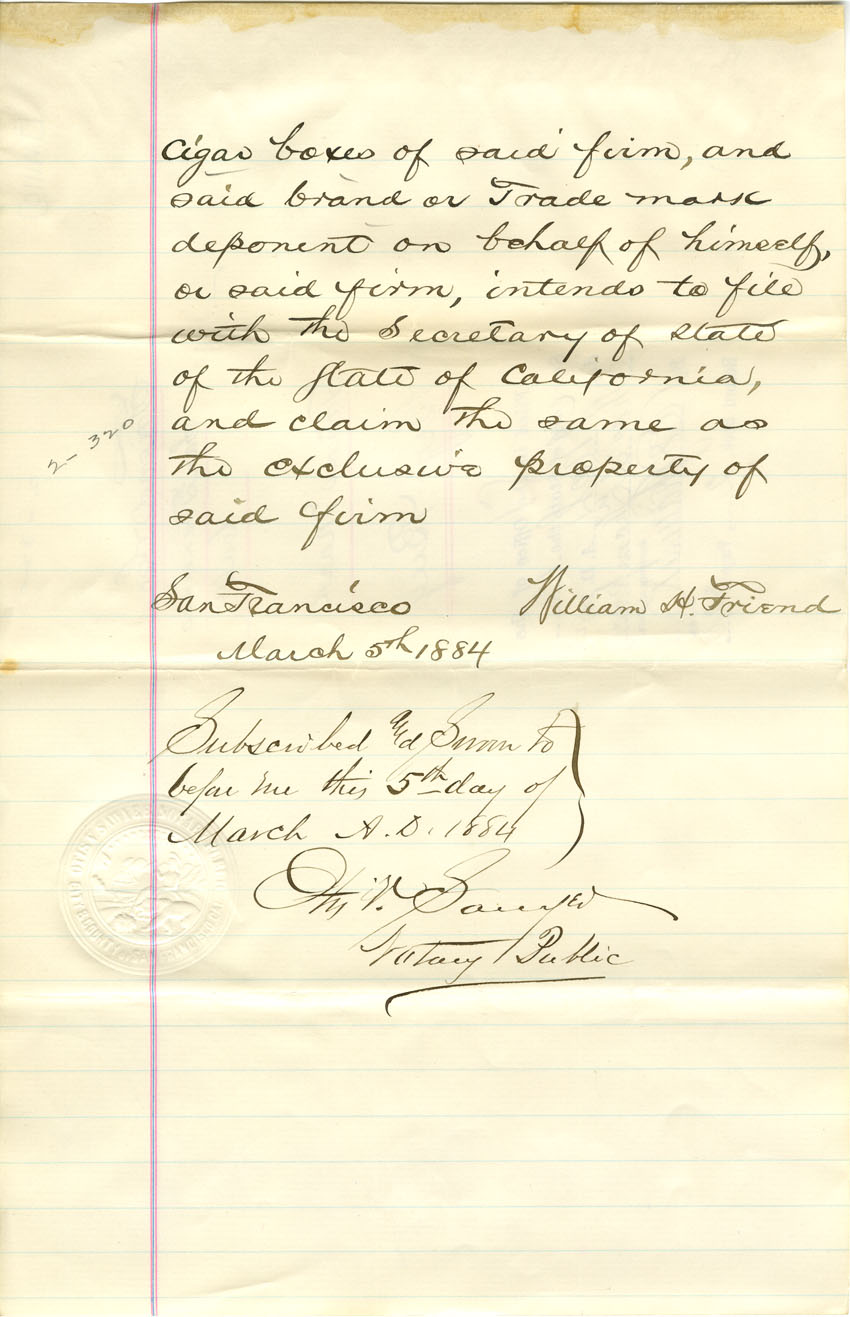 Cigar boxes of said firm, and
said brand or Trade mark
deponent on behalf of himself,
or said firm, intends to file
with the Secretary of State
of the State of California,
and claim the same as
the exclusive property of
said firm
2-320
San Francisco William H. Friend
March 5th 1884
Subscribed and Sworn to
before me this 5th day of
March A.D. 1884
V. Sawyer
Notary Public